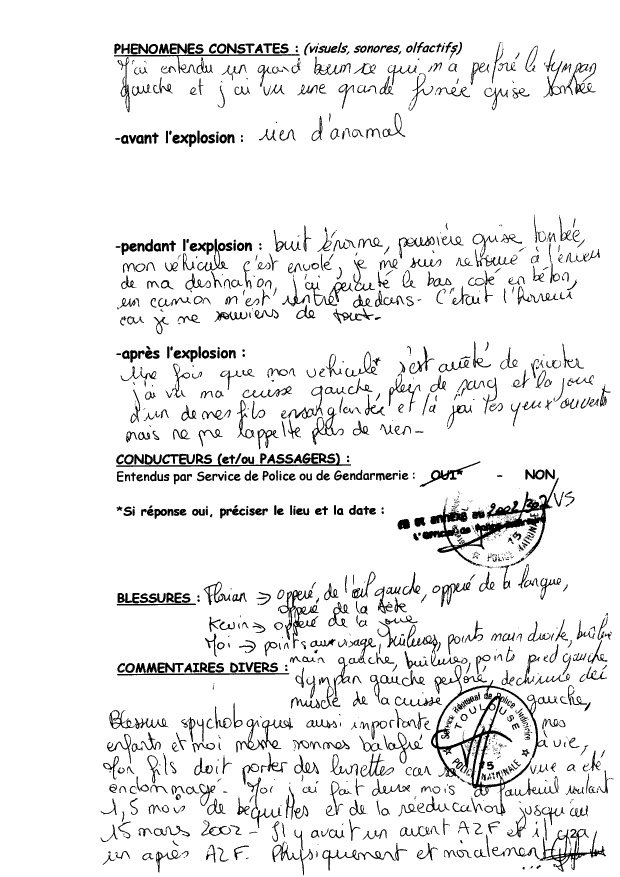 PHENOMENES CONSTATES : (visuels, sonores, olfactifs)
J'ai entendu un grand boum ce qui m'a perforé le tympan
gauche et j'ai vu une grande fumée grise tombée
-avant l'explosion : rien d'anamal
-pendant l'explosion : buit énorme, poussière grise tombée,
mon véhicule c'est envolé, je me suis retrouvé à l'envers
de ma destination, j'ai percuté le bas coté en béton,
un camion m'est rentré dedans - C'était l'horreur
car je me souviens de tout -
-après l'explosion :
Une fois que mon véhicule s'est arrêté de pivoter
j'ai vu ma cuisse gauche, plein de sang et la joue
d'un de mes fils ensanglantée et là j'ai les yeux ouverts
mais ne me rappelle plus de rien -
CONDUCTEURS (et/ou PASSAGERS) :
Entendus par Service de Police ou de Gendarmerie : OUI* - NON
*Si réponse oui, préciser le lieu et la date :
et annexé au 2002/302/VS
l'Officier de Police Judiciaire
POLICE NATIONALE
BLESSURES : Florian → opperé de l'œil gauche, opperé de la langue,
opperé de la tête
Kevin → opperé de la joue
Moi → points au visage, brûlures, points main droite, brûlure
main gauche, brulures, points pied gauche
COMMENTAIRES DIVERS :
tympan gauche perforé, déchirure des
muscle de la cuisse gauche,
Service Régional de Police Judiciaire
TOULOUSE
POLICE NATIONALE
Blessure spychologique aussi importante mes
enfants et moi même sommes balafré à vie,
Mon fils doit porter des lunettes car sa vue a été
endommagé - Moi j'ai fait deux mois de fauteuil roulant
1,5 mois de béquilles et de la rééducation jusqu'au
15 mars 2002 - Il y avait un avant AZF et il y a
un après AZF. Physiquement et moralement
...